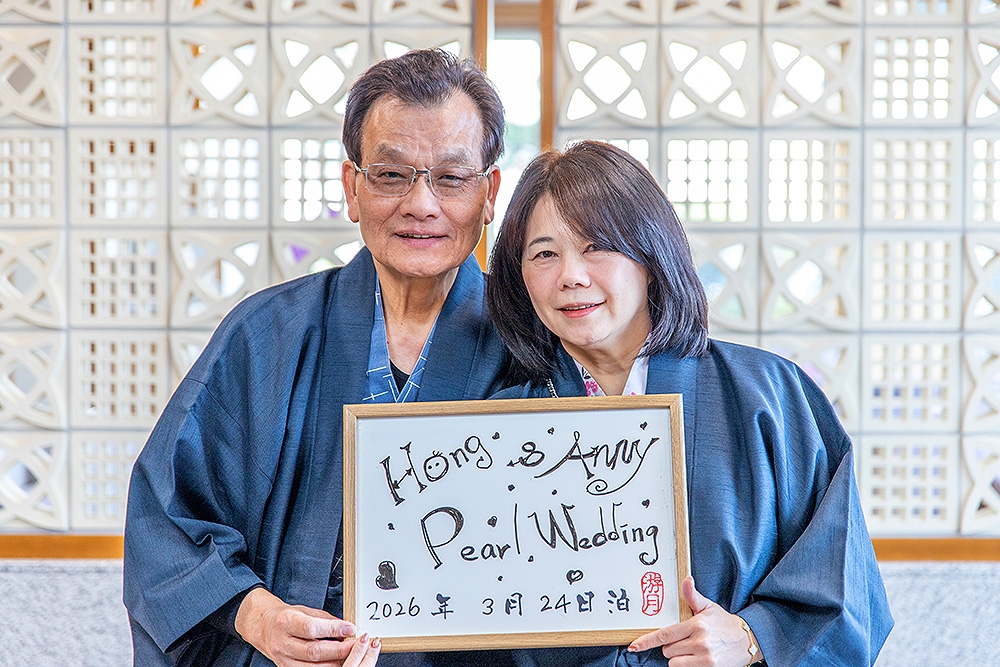 Hong & Anny
Pearl Wedding
2026年 3月 24日 泊
游月